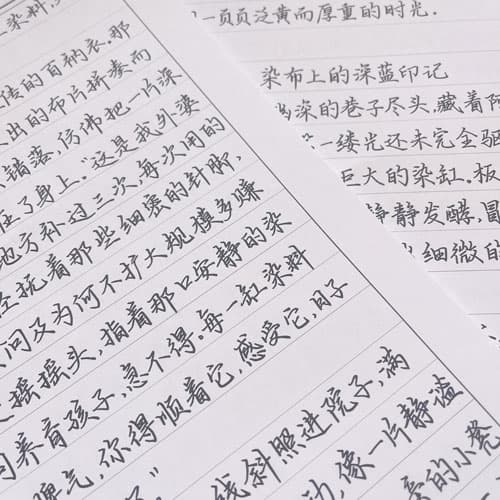 染料，
传的百衲衣。那
出的布片拼凑而
错落，仿佛把一片深
在了身上。"这是我外婆
地方补过三次，每次用的
抚着那些细密的针脚，
问及为何不扩大规模多赚
摇摇头，指着那口安静的染
同养育孩子，急不得。每一缸染料
脾气，你得顺着它，感受它，日子
线斜照进院子，满
像一片静谧
的小凳
一页页泛黄而厚重的时光.
染布上的深蓝印记
幽深的巷子尽头，藏着阿
第一缕光还未完全驱
巨大的染缸。板
静静发酵，冒
出细微的